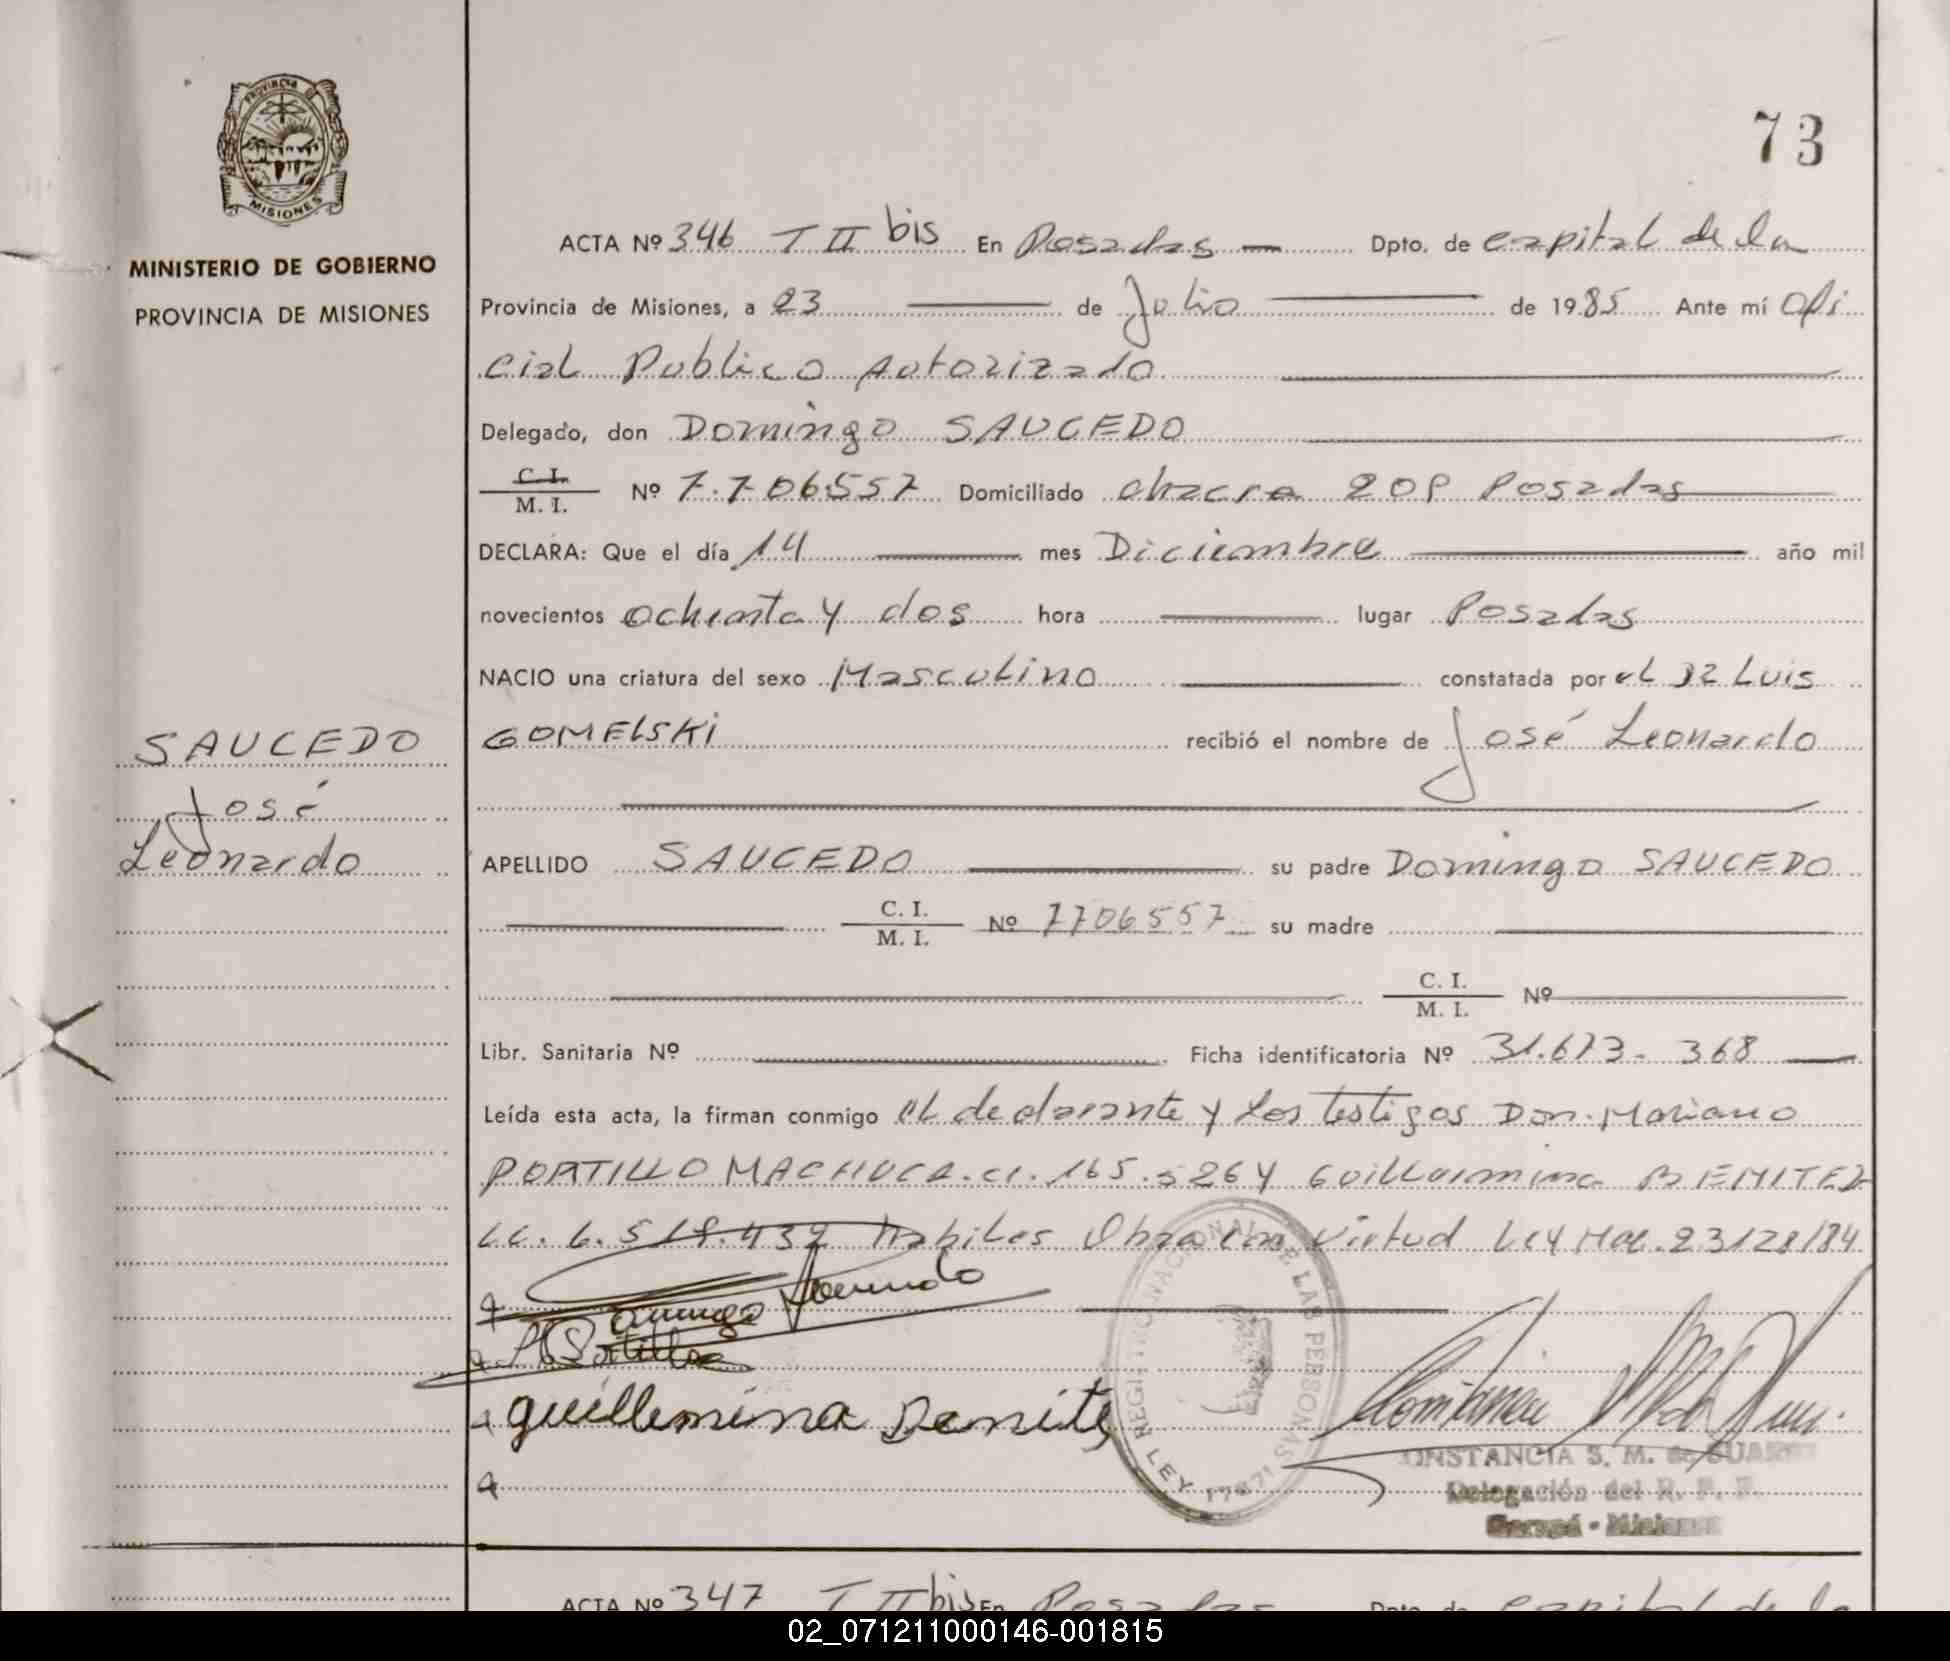 73
PROVINCIA DE
MISIONES
MINISTERIO DE GOBIERNO
PROVINCIA DE MISIONES
ACTA Nº 346 T II bis En Posadas Dpto. de capital de la
Provincia de Misiones, a 23 de Julio de 1985 Ante mí Ofi
cial Publico Autorizado
Delegado, don Domingo SAUCEDO
C. I.
M. I. Nº 7.706.557 Domiciliado chacra 208 Posadas
DECLARA: Que el día 14 mes Diciembre año mil
novecientos ochenta y dos hora lugar Posadas
NACIO una criatura del sexo Masculino constatada por el Dr Luis
GOMELSKI recibió el nombre de José Leonardo
SAUCEDO
José
Leonardo
APELLIDO SAUCEDO su padre Domingo SAUCEDO
C. I.
M. I. Nº 7706557 su madre
C. I.
M. I. Nº
Libr. Sanitaria Nº Ficha identificatoria Nº 31.673.368
Leída esta acta, la firman conmigo el declarante y los testigos Don Mariano
PORTILLO MACHUCA. CI. 165.526 y Guillermina BENITEZ
LC. 6. Habiles Obra en Virtud Ley Nac. 23128/84
Domingo Saucedo
M Portillo
guillermina Benite
REGISTRO NACIONAL DE LAS PERSONAS
LEY 17671
CONSTANCIA S. M. de SUAREZ
Delegación del R. P. P.
Garupá - Misiones
ACTA Nº 347 T II bis En Posadas Dpto. de capital de la
02_071211000146-001815